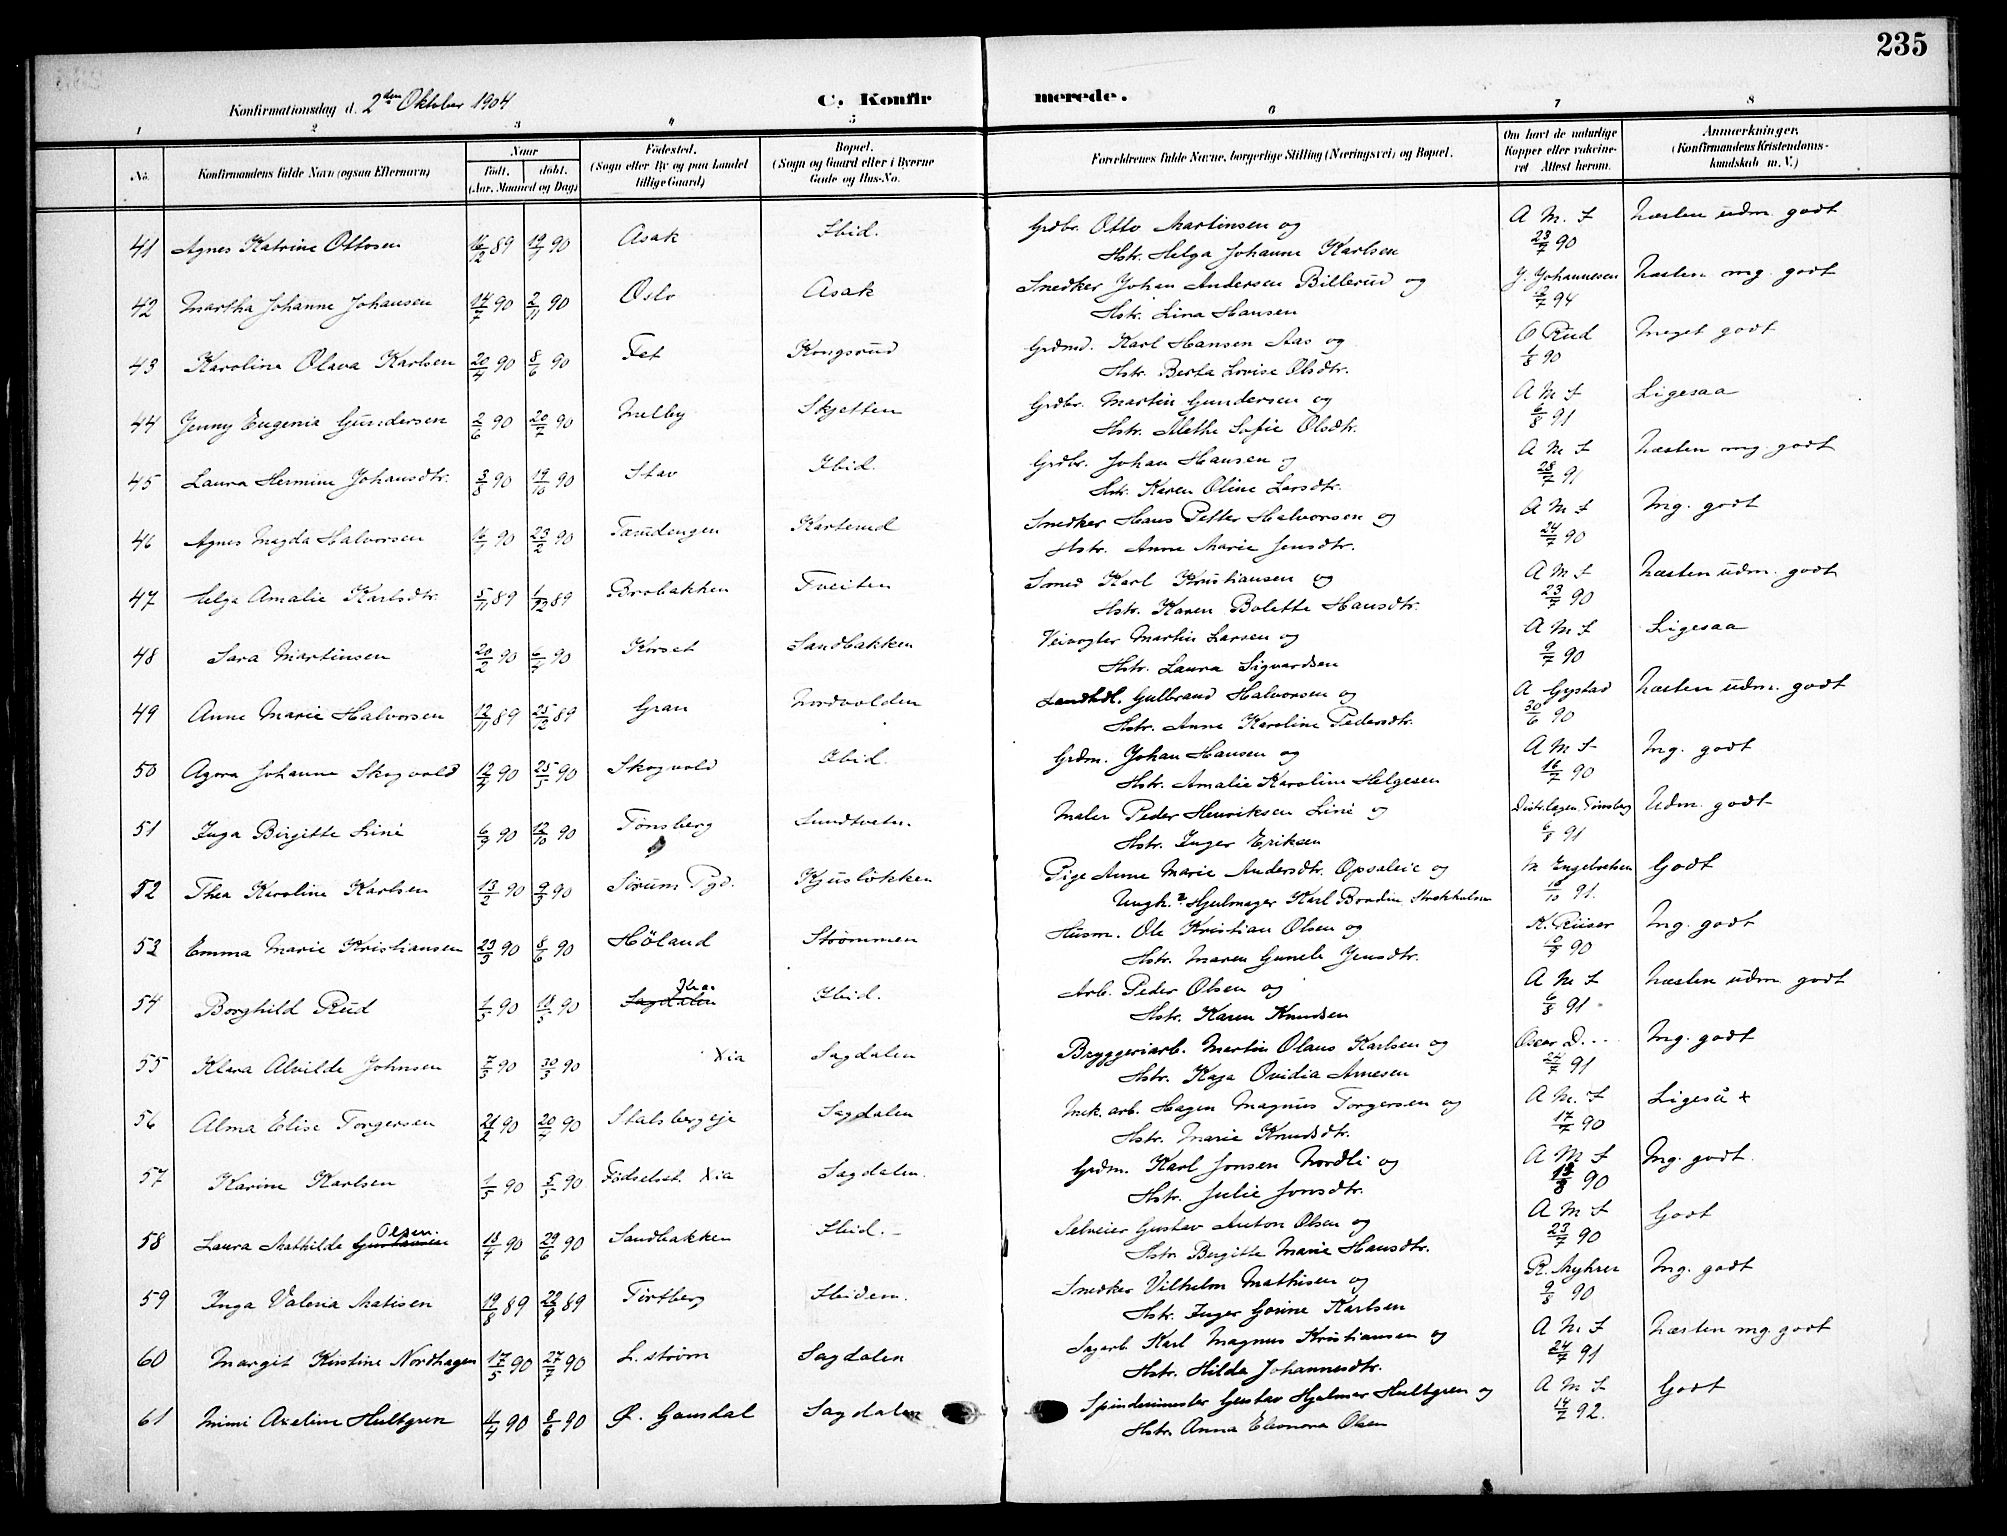 235
Konfirmationsdag d. 2den Oktober 1904
C. Konfirmerede.
1 2 3 4 5 6 7 8
No.
Konfirmandens fulde Navn (ogsaa Efternavn)
Naar
født. døbt.
(Aar, Maaned og Dag)
Fødested.
(Sogn eller By og paa Landet
tillige Gaard)
Bopæl.
(Sogn og Gaard eller i Byerne
Gade og Hus-No.
Forældrenes fulde Navne, borgerlige Stilling (Næringsvei) og Bopæl.
Om havt de naturlige
Kopper eller vakcine-
ret Attest herom.
Anmærkninger,
(Konfirmandens Kristendoms-
kundskab m. V.)
41 Agnes Katrine Ottosen 16/12 89 19/1 90 Asak Ibid. Grdbr. Otto Martinsen og A M. F Næsten udm. godt
Hstr. Helga Johanne Karlsen 23/7 90
42 Martha Johanne Johansen 14/7 90 2/11 90 Oslo Asak Snedker Johan Andersen Billerud og J. Johannesen Næsten mg. godt
Hstr. Lina Hansen 94
43 Karoline Olava Karlsen 20/4 90 8/6 90 Fet Kongsrud Grdmd. Karl Hansen Aas og O Rud Meget godt
Hstr. Berta Lovise Olsdtr. 1/8 90
44 Jenny Eugenia Gundersen 2/6 90 20/7 90 Melby Skjetten Grdbr. Martin Gundersen og A M F Ligesaa
Hstr. Mathe Sofie Olsdtr. 6/8 91
45 Laura Hermine Johansdtr. 3/8 90 19/10 90 Stav Ibid. Grdbr. Johan Hansen og A M F Næsten mg. godt
Hstr. Karen Oline Larsdtr. 28/7 91
46 Agnes Magda Halvorsen 90 23/2 90 Tærudengen Karterud Snedker Hans Petter Halvorsen og A M F Mg. godt
Hstr. Anne Marie Jensdtr. 24/7 90
47 Helga Amalie Karlsdtr. 5/11 89 1/12 89 Brobakken Tveiten Smed Karl Kristiansen og A M F Næsten udm. godt
Hstr. Karen Bolette Hansdtr. 23/7 90
48 Sara Martinsen 20/2 90 6/4 90 Korset Sandbakken Veivogter Martin Larsen og A M F Ligesaa
Hstr. Laura Sigvardsen 9/7 90
49 Anne Marie Halvorsen 12/11 89 25/12 89 Gran Nordvolden Landhdl. Gulbrand Halvorsen og A Gystad Næsten udm. godt
Hstr. Anne Karoline Pedersdtr. 30/6 90
50 Agora Johanne Skogvold 12/4 90 25/5 90 Skogvold Ibid. Grdm. Johan Hansen og A M F Mg. godt
Hstr. Amalie Karoline Helgesen 16/7 90
51 Inga Birgitte Linè 6/9 90 12/10 90 Tønsberg Lundtveten Maler Peder Henriksen Linè og Distr.lægen Tønsberg Udm. godt
Hstr. Inger Eriksen 6/8 91
52 Thea Karoline Karlsen 13/2 90 9/3 90 Sørum Pgd. Kjusløkken Pige Anne Marie Andersdtr. Opsaleie og M. Engebretsen Godt
Ungk. Hjulmager Karl Brodin Stokholm 91.
53 Emma Marie Kristiansen 23/3 90 8/6 90 Høland Strømmen Husm. Ole Kristian Olsen og K. Riiser Mg. godt
Hstr. Maren Gunele Jensdtr. 90
54 Borghild Rud 1/5 90 18/5 90 Sagdalen Ibid. Arb. Peder Olsen og A M F Næsten udm. godt
Hstr. Karen Knudsen 6/8 91
55 Klara Alvilde Johnsen 7/3 90 30/3 90 Xia Sagdalen Bryggeriarb. Martin Olaus Karlsen og Oscar D... Mg. godt
Hstr. Kaja Ovidia Arnesen 24/7 91
56 Alma Elise Torgersen 21/2 90 20/4 90 Stalsbergeje Sagdalen Mek. arb. Hagen Magnus Torgersen og A M. F Ligeså x
Hstr. Marie Knudsdtr. 17/7 90
57 Karine Karlsen 1/5 90 5/5 90 Fødselsst. Xia Sagdalen. Grdm. Karl Jonsen Nordli og A M F Mg. godt.
Hstr. Julie Jonsdtr. 90
58 Laura Mathilde Gustavsen Olsen. 13/4 90 29/6 90 Sandbakken Ibid. Selveier Gustav Anton Olsen og A M F Godt
Hstr. Birgitte Marie Hansdtr. 23/7 90
59 Inga Valeria Matisen 19/8 89 22/9 89 Tørtberg Ibidem. Snedker Vilhelm Mathisen og R. Myhrer Mg. godt
Hstr. Inger Gorine Karlsen 9/8 90
60 Margit Kirstine Nordhagen 17/5 90 27/7 90 L. strøm Sagdalen Sagarb. Karl Magnus Kristiansen og A M. F Næsten mg. godt
Hstr. Hilda Johannesdtr. 24/7 91
61 Mimi Axeline Hultgren 4/4 90 8/6 90 Ø. Gausdal Sagdalen Spinderimester Gustav Hjalmar Hultgren og A M F Godt
Hstr. Anna Eleonora Olsen 14/7 92.